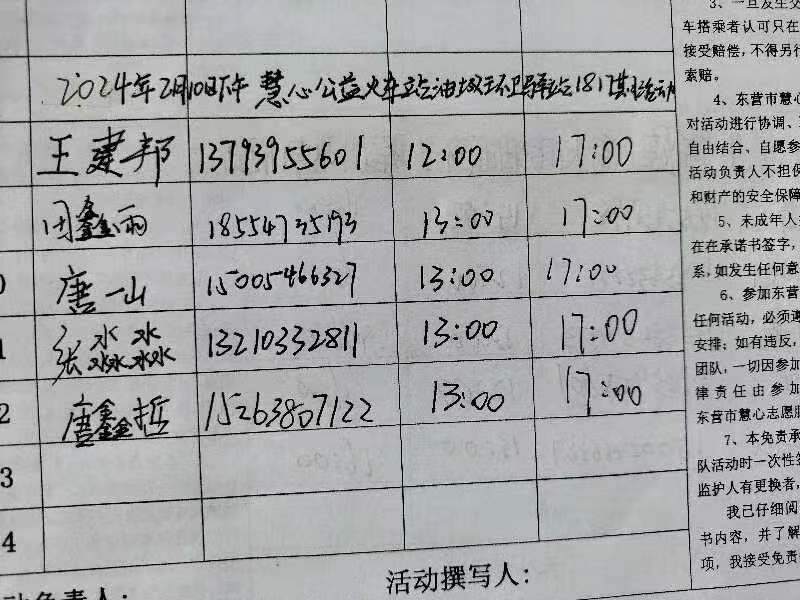 2024年2月10日下午 慧心公益火车站油城环卫驿站1817期活动
王建邦 13793955601 12:00 17:00
闭鑫雨 18554735193 13:00 17:00
0 唐一山 15005466327 13:00 17:00
1 张淼淼 13210332811 13:00 17:00
2 唐鑫鑫哲 15263807122 13:00 17:00
3
4
活动撰写人:
动负责人:
3、一旦发生交
车搭乘者认可只在
接受赔偿,不得另行
索赔。
4、东营市慧心
对活动进行协调、
自由结合、自愿参
活动负责人不担保
和财产的安全保障
5、未成年人
在在承诺书签字,
系,如发生任何意
6、参加东营
任何活动,必须遵
安排;如有违反,
团队,一切因参加
律责任由参加
东营市慧心志愿服
7、本免责承
队活动时一次性签
监护人有更换者,
我已仔细阅
书内容,并了解
项,我接受免责